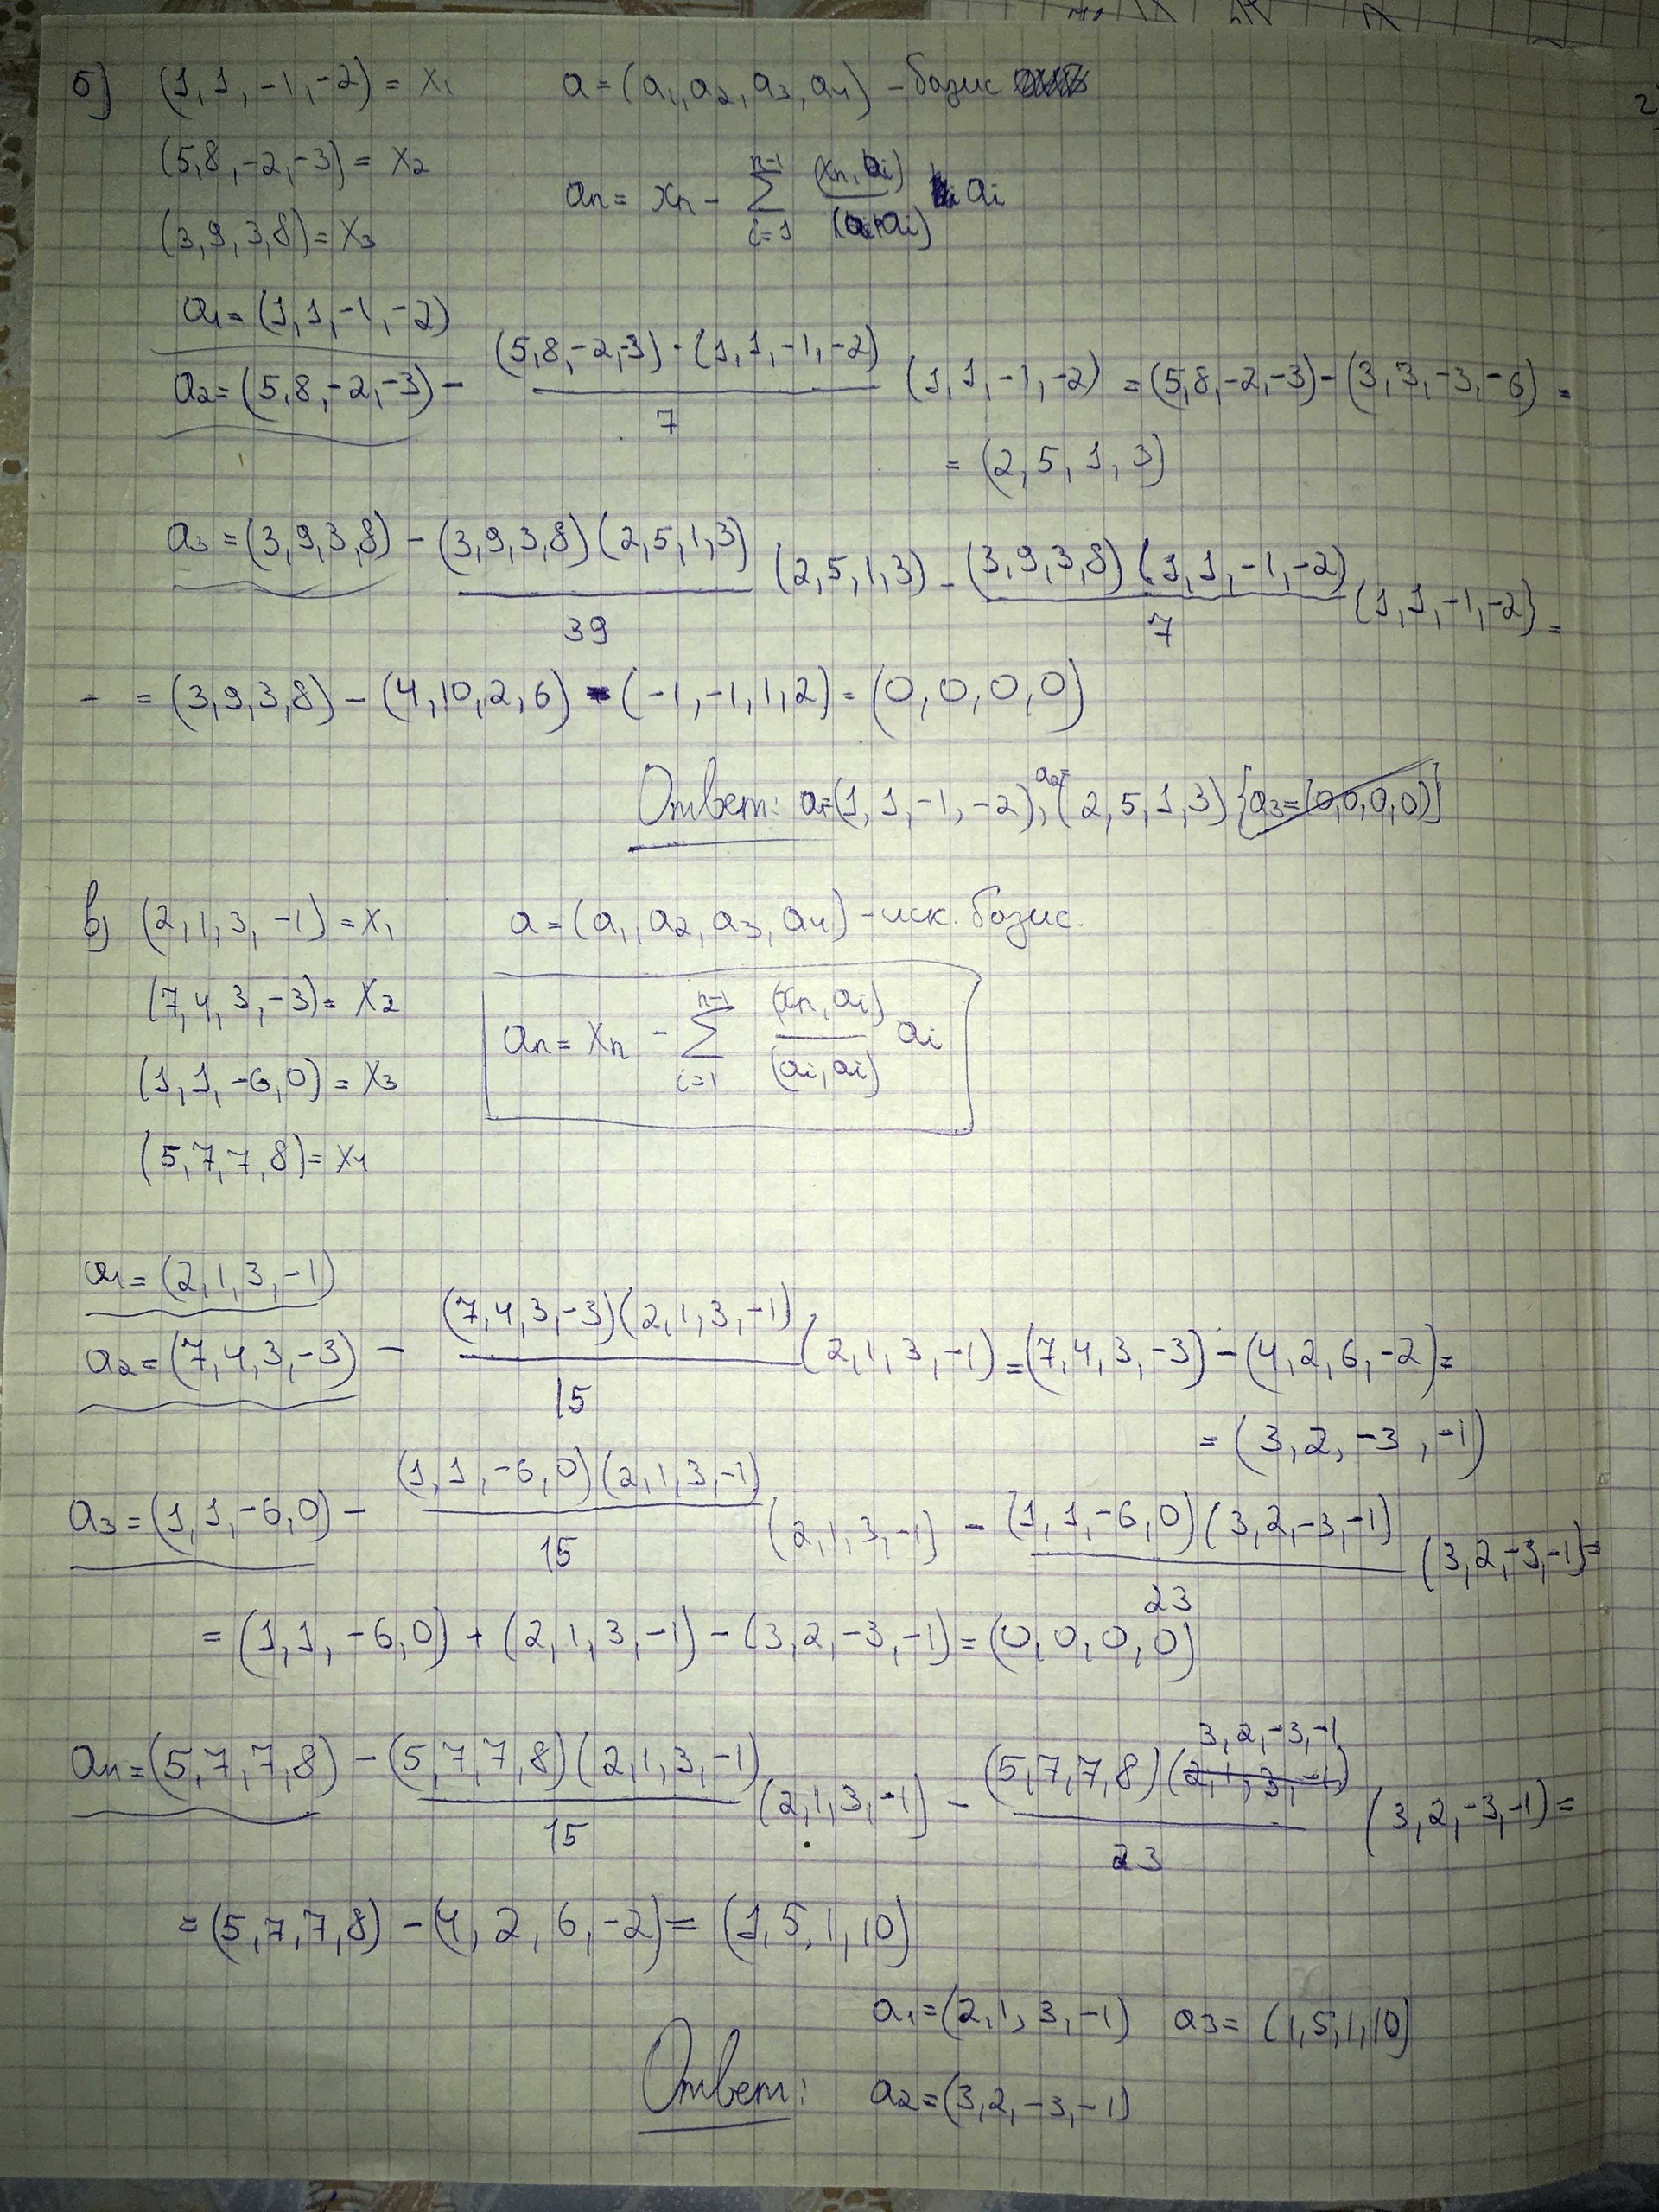 б) (1, 1, -1, -2) = x₁ a = (a₁, a₂, a₃, a₄) - базис
(5, 8, -2, -3) = x₂
aₙ = xₙ - ∑ᵢ₌₁ⁿ⁻¹ (xₙ, aᵢ)/(aᵢ, aᵢ) aᵢ
(3, 9, 3, 8) = x₃
a₁ = (1, 1, -1, -2)
a₂ = (5, 8, -2, -3) - (5, 8, -2, -3) · (1, 1, -1, -2)/7 (1, 1, -1, -2) = (5, 8, -2, -3) - (3, 3, -3, -6) =
= (2, 5, 1, 3)
a₃ = (3, 9, 3, 8) - (3, 9, 3, 8)(2, 5, 1, 3)/39 (2, 5, 1, 3) - (3, 9, 3, 8)(1, 1, -1, -2)/7 (1, 1, -1, -2) =
- = (3, 9, 3, 8) - (4, 10, 2, 6) - (-1, -1, 1, 2) = (0, 0, 0, 0)
Ответ: a₁=(1, 1, -1, -2), a₂=(2, 5, 1, 3) {a₃=(0,0,0,0)}
в) (2, 1, 3, -1) = x₁ a = (a₁, a₂, a₃, a₄) - иск. базис.
(7, 4, 3, -3) = x₂
aₙ = xₙ - ∑ᵢ₌₁ⁿ⁻¹ (xₙ, aᵢ)/(aᵢ, aᵢ) aᵢ
(1, 1, -6, 0) = x₃
(5, 7, 7, 8) = x₄
a₁ = (2, 1, 3, -1)
a₂ = (7, 4, 3, -3) - (7, 4, 3, -3)(2, 1, 3, -1)/15 (2, 1, 3, -1) = (7, 4, 3, -3) - (4, 2, 6, -2) =
= (3, 2, -3, -1)
a₃ = (1, 1, -6, 0) - (1, 1, -6, 0)(2, 1, 3, -1)/15 (2, 1, 3, -1) - (1, 1, -6, 0)(3, 2, -3, -1)/23 (3, 2, -3, -1) =
= (1, 1, -6, 0) + (2, 1, 3, -1) - (3, 2, -3, -1) = (0, 0, 0, 0)
a₄ = (5, 7, 7, 8) - (5, 7, 7, 8)(2, 1, 3, -1)/15 (2, 1, 3, -1) - (5, 7, 7, 8)(3, 2, -3, -1)/23 (3, 2, -3, -1) =
= (5, 7, 7, 8) - (4, 2, 6, -2) = (1, 5, 1, 10)
a₁ = (2, 1, 3, -1) a₃ = (1, 5, 1, 10)
Ответ: a₂ = (3, 2, -3, -1)